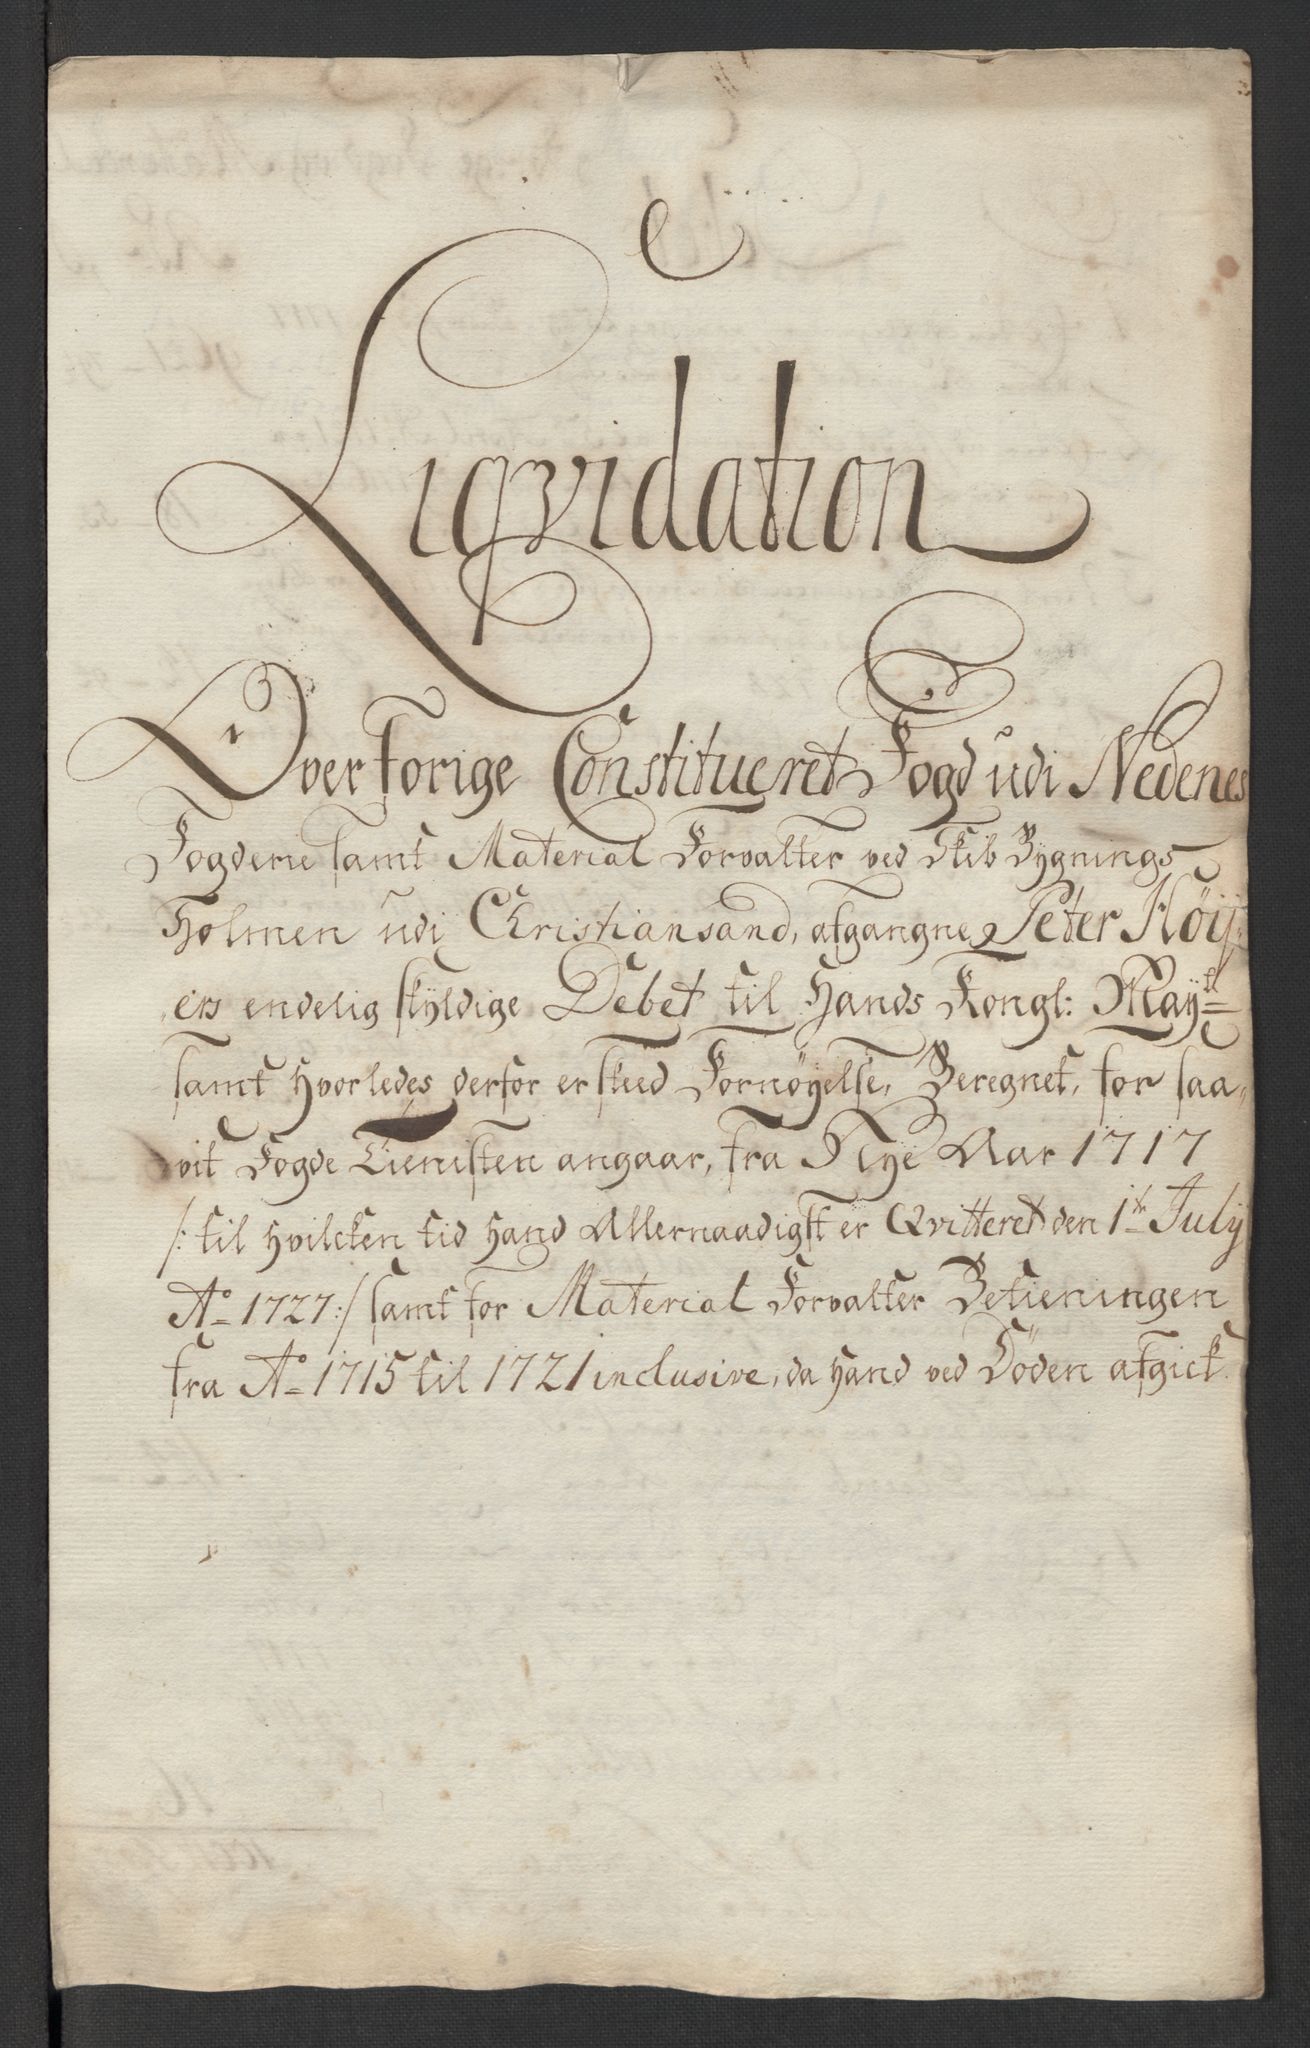 Liqvidation
Over forige Constitueret Fogd udi Nedenes
Fogderie samt Material Forvalter ved Skib Bygnings
Holmen udi Christiansand, afgangne Peter Höij,,
ers endelig skÿldige Debet til Hands Kongl: Maÿts
samt hvorledes derfor er skeed Fornöyelse, Beregnet, for saa,,
vit Fogde Tienisten angaar, fra Nye Aar 1717
/: til hvilcken tid hand Allernaadigst er Qvitteret den 1te Julij
Ao 1727:/ samt for Material Forvalter Betieningen
fra Ao 1715 til 1721 inclusive, da hand ved Döden afgick.